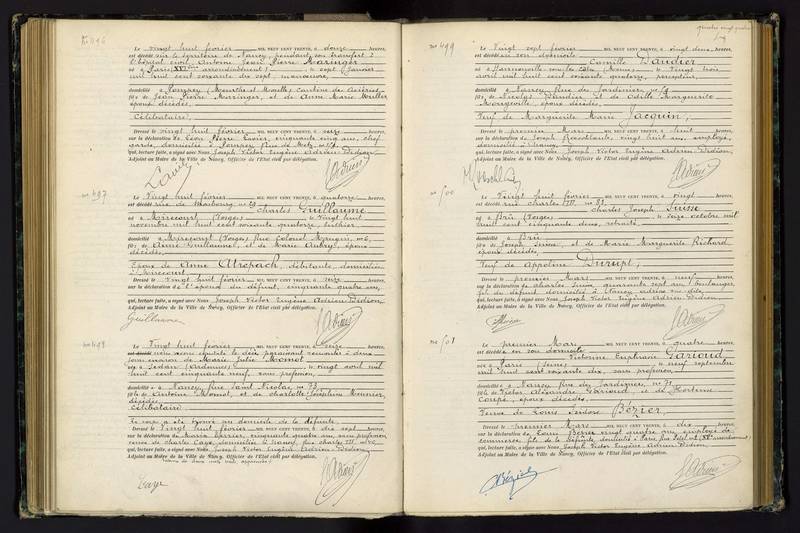 Le vingt huit février MIL NEUF CENT TRENTE, à douze heures,
est décédé sur le territoire de Nancy, pendant son transfert à
l'hôpital civil, Antoine Jean Pierre Maringer
né à Paris arrondissement) sept janvier
mil huit cent soixante dix sept, manœuvre,
domicilié à Pompey (Meurthe et Moselle)
fils de Jean Pierre Maringer, et de Anne Marie Muller
époux décédés,
Célibataire.
Dressé le vingt huit février MIL NEUF CENT TRENTE, à seize heures,
sur la déclaration de Léon Pierre cinquante cinq ans,
garde, domicilié à Pompey Rue de Metz
qui, lecture faite, a signé avec Nous Joseph Victor Eugène Adrien Didion,
Adjoint au Maire de la Ville de Nancy, Officier de l'Etat civil par délégation.
No 497
Le Vingt huit février MIL NEUF CENT TRENTE, à quatorze heures,
est décédé rue de Strasbourg
Charles Guillaume
né à Mirecourt (Vosges) le vingt huit
novembre mil huit cent soixante quatorze, luthier
domicilié à Mirecourt (Vosges) Rue Colonel
fils de Aimé Guillaume, et de Marie Aubry, époux
décédés,
Epoux de Anne débitante, domiciliée
à Mirecourt
Dressé le vingt huit février MIL NEUF CENT TRENTE, à seize heures,
sur la déclaration de l'épouse du défunt, cinquante quatre ans,
qui, lecture faite, a signé avec Nous Joseph Victor Eugène Adrien Didion
Adjoint au Maire de la Ville de Nancy, Officier de l'Etat civil par délégation.
Guillaume
Le Vingt huit février MIL NEUF CENT TRENTE, à seize heures,
nous avons constaté le décès paraissant remonter à deux
jours environ de Marie Julie Momot
née à Sedan (Ardennes) le vingt avril mil
huit cent cinquante neuf, sans profession,
domiciliée à Nancy, Rue Saint Nicolas, no 73
fille de Antoine Momot, et de Charlotte Joséphine Meunier,
décédés
Célibataire
Le corps a été trouvé au domicile de la défunte.
Dressé le Vingt huit février MIL NEUF CENT TRENTE, à dix sept heures,
sur la déclaration de Marie cinquante quatre ans, sans profession
domiciliée à Nancy, rue Charles III
qui, lecture faite, a signé avec Nous Joseph Victor Eugène Adrien Didion
Adjoint au Maire de la Ville de Nancy, Officier de l'Etat civil par délégation.
No 499
Le Vingt sept février MIL NEUF CENT TRENTE, à vingt deux heures,
est décédé en son domicile
Camille Daudier
né à (Marne) le Vingt trois
avril mil huit cent soixante quatorze, percepteur,
domicilié à Nancy Rue des Jardiniers,
fils de Nicolas Daudier, et de Odile Marguerite
époux décédés,
Veuf de Marguerite Marie Jacquin,
Dressé le premier Mars MIL NEUF CENT TRENTE, à huit heures,
sur la déclaration de Joseph vingt huit ans, employé,
domicilié à Nancy,
qui, lecture faite, a signé avec Nous Joseph Victor Eugène Adrien Didion,
Adjoint au Maire de la Ville de Nancy, Officier de l'Etat civil par délégation.
No 500
Le Vingt huit février MIL NEUF CENT TRENTE, à vingt heures,
est décédé rue Charles III no 83
Charles Joseph Suisse
né à Brû (Vosges) le seize octobre mil
huit cent cinquante deux, retraité
domicilié à Brû
fils de Joseph Suisse, et de Marie Marguerite Richard
époux décédés,
Veuf de Appoline Durupt,
Dressé le premier Mars MIL NEUF CENT TRENTE, à neuf heures,
sur la déclaration de Charles Suisse, quarante sept ans, boulanger,
fils du défunt domicilié à Nancy
qui, lecture faite, a signé avec Nous Joseph Victor Eugène Adrien Didion
Adjoint au Maire de la Ville de Nancy, Officier de l'Etat civil par délégation.
No 501
Le premier Mars MIL NEUF CENT TRENTE, à quatre heures,
est décédée en son domicile
Victorine Euphrasie Garioud
née à Paris (Seine) le neuf septembre
mil huit cent soixante dix, sans profession
domiciliée à Nancy Rue des Jardiniers, no 71
fille de Victor Alexandre Garioud, et de Hortense
époux décédés
Veuve de Louis Isidore Bézier,
Dressé le premier Mars MIL NEUF CENT TRENTE, à dix heures,
sur la déclaration de Bézier vingt quatre ans, employé de
commerce, fils de la défunte, domicilié à Paris
qui, lecture faite, a signé avec Nous Joseph Victor Eugène Adrien Didion,
Adjoint au Maire de la Ville de Nancy, Officier de l'Etat civil par délégation.
Bézier